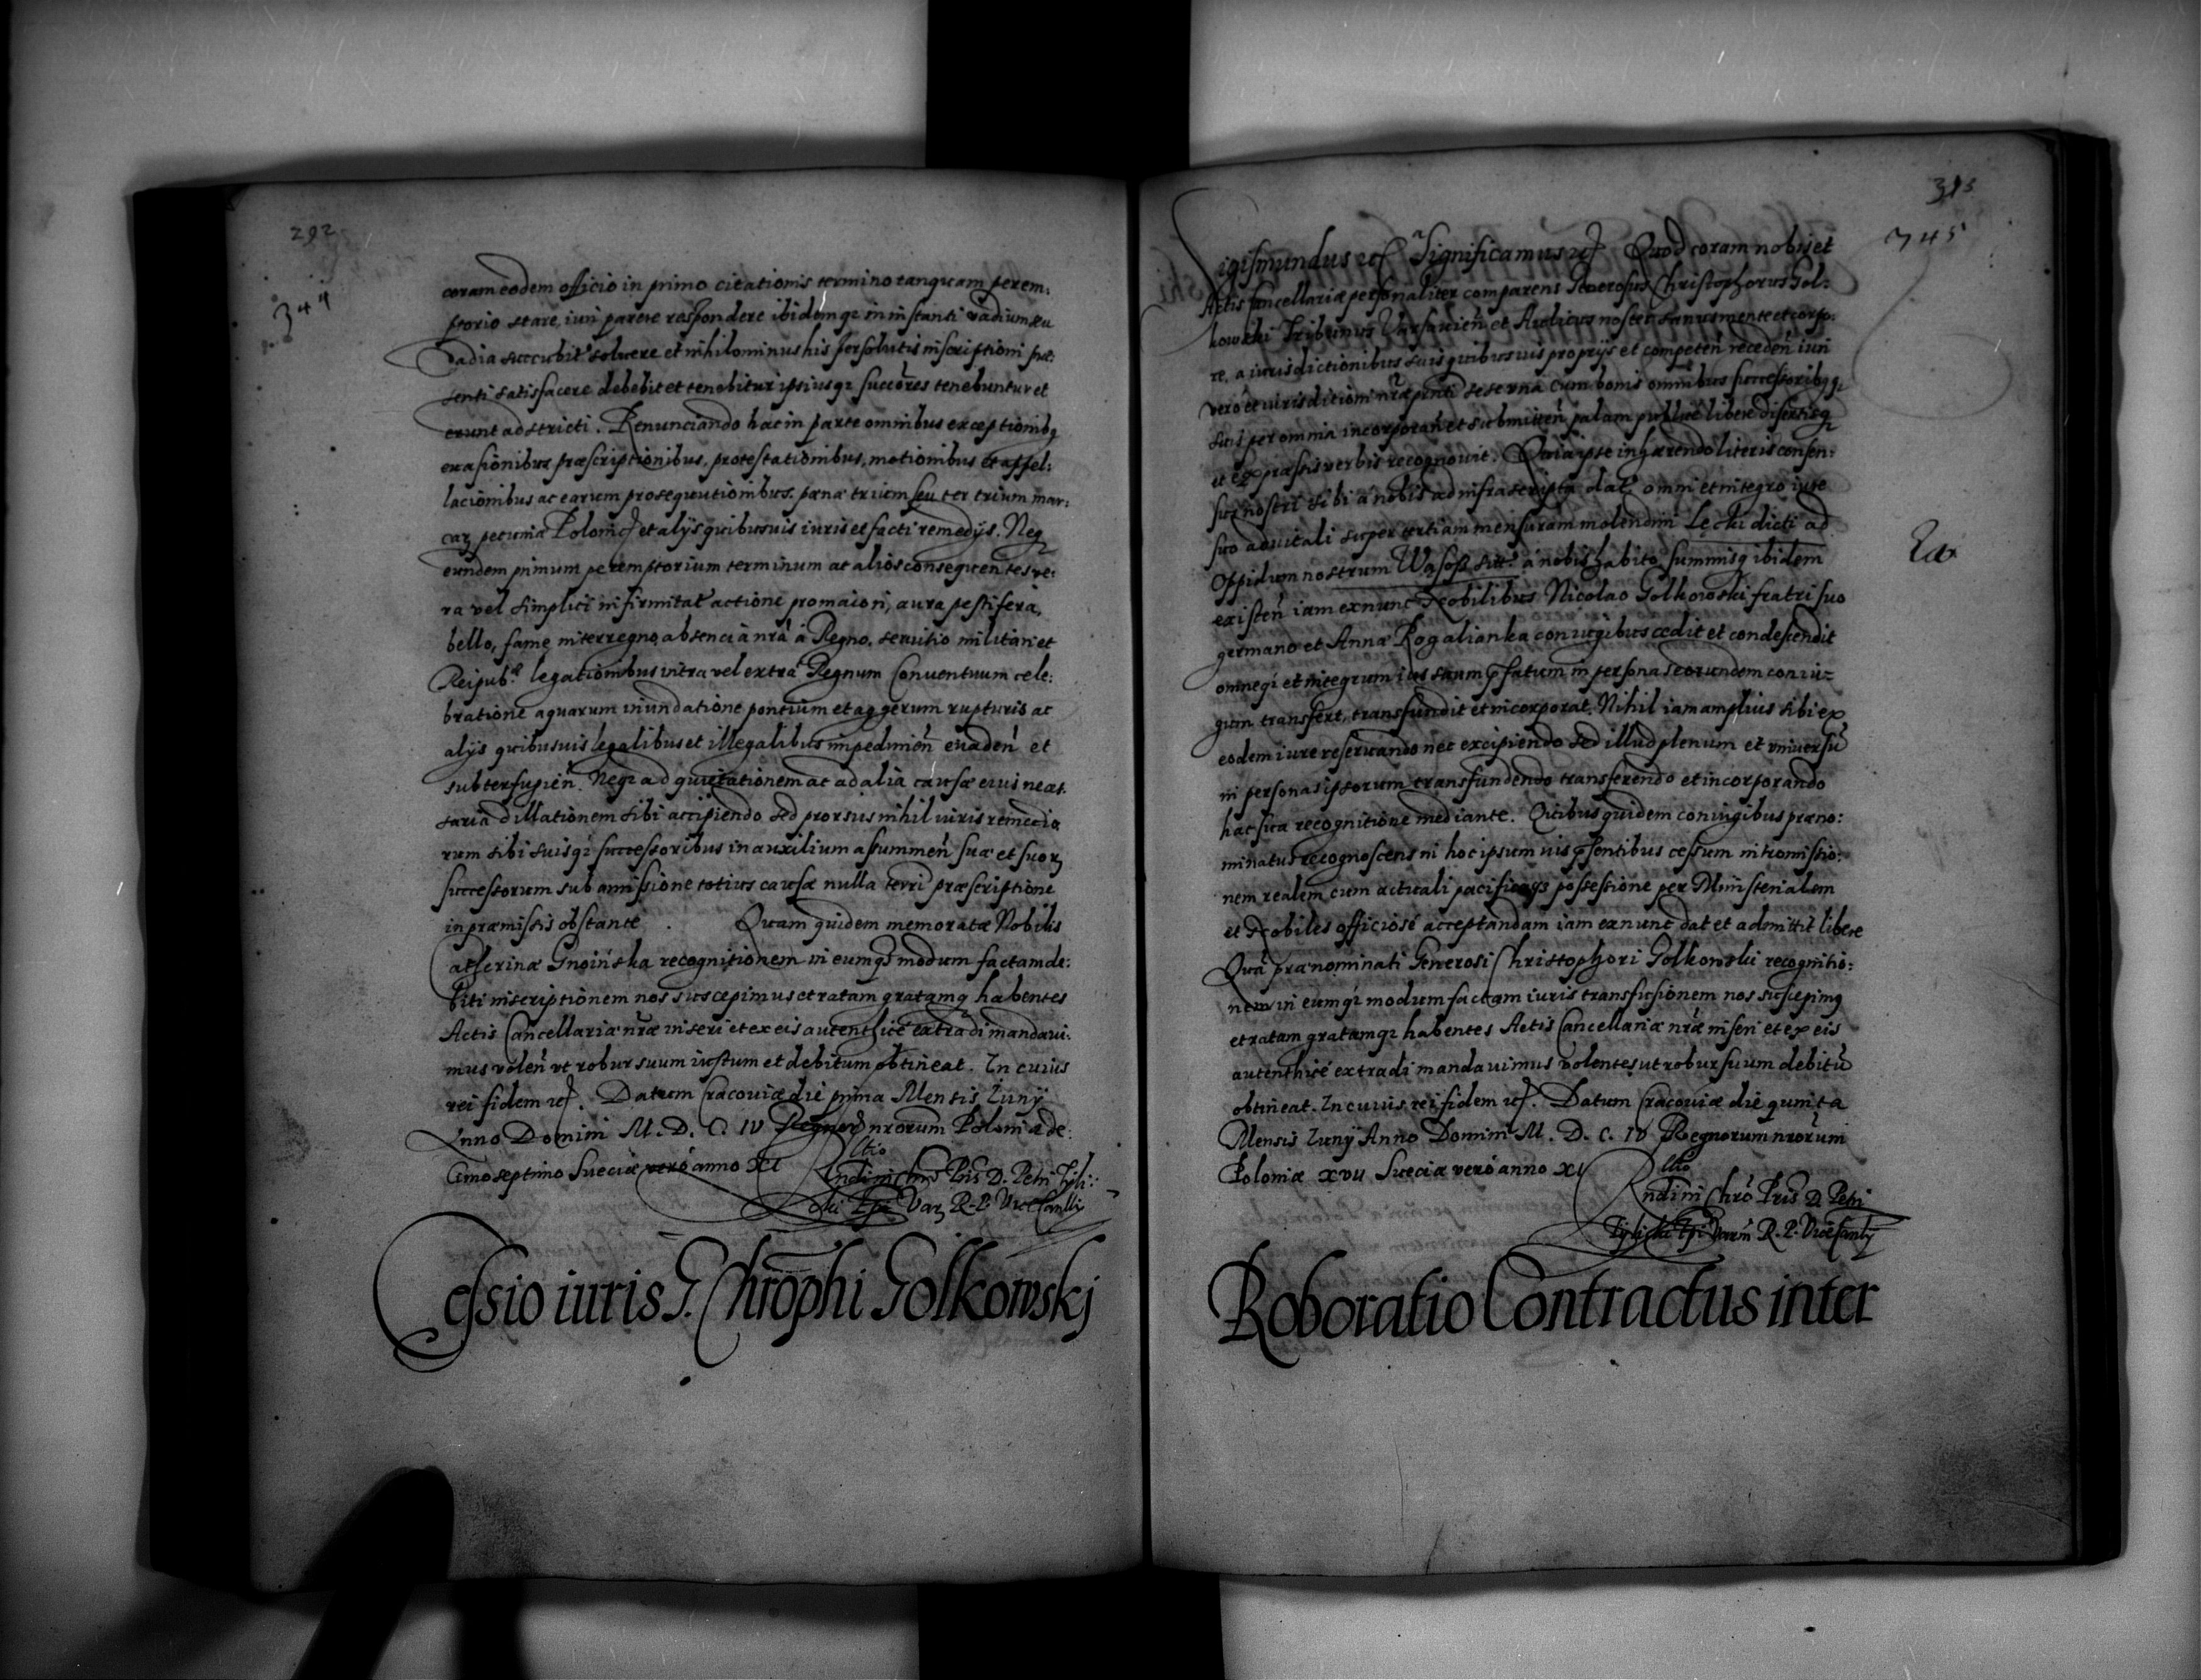 292
344
coram eodem officio in primo citationis termino tanquam perem:
ptorio stare, iuri parere respondere ibidemqz in instanti vadium seu
vadia succubit solvere et nihilominus his persolutis inscriptioni præ:
senti satisfacere debebit et tenebitur ipsiusqz succőres tenebuntur et
erunt adstricti. Renunciando hac in parte omnibus exceptionibq
evasionibus præscriptionibus, protestationibus, motionibus et appel:
lacionibus ac earum prosequutionibus. pœna trium seu ter trium mar:
caꝝ pecuniæ Polonicæ et alijs quibusuis iuris et facti remedijs. Neqz
eundem primum peremptorium terminum ac alios consequentes ve:
ra vel simplici infirmitate actione pro maiori, aura pestifera,
bello, fame, interregno, absencia nrã à Regno, servitio militari et
Reipubcæ legationibus intra vel extra Regnum Conventuum cele:
bratione aquarum inundatione pontium et aggerum rupturis ac
alijs quibusuis legalibus et illegalibus impedimen evaden et
subterfugien. Neqz ad quietationem ac ad alia causæ eius neces:
saria dillationem sibi accipiendo sed prorsus nihil iuris remedio
rum sibi suisqz successoribus in auxilium assummen suæ et suorꝝ
successorum sub amissione totius causæ nulla terri præscriptione
in præmissis obstante. Quam quidem memoratæ Nobilis
Catherinæ Gnoińska recognitionem in eumqz modum factam de:
biti inscriptionem nos suscepimus et ratam gratamqz habentes
Actis Cancellariæ nræ inseri et ex eis autenthicè extradi mandavi:
mus volen ut robur suum iustum et debitum obtineat. In cuius
rei fidem etc. Datum Cracoviæ die prima Mensis Iunÿ
Anno Domini M. D. C. IV Regnorű nrorum Poloniæ de:
cimo septimo Sueciæ vero anno XI
Rltio
Rndi in Chrő Pris D. Petri Tyli:
cki Epi Var R. P. Vicecanllÿ
Cessio iuris G. Chrophi Golkowskj
315
345
Sigismundus etc Significamus etc Quod coram nobis et
Actis Cancellariæ personaliter comparens Generosus Christophorus Gol:
kowski Tribunus Varsavien et Aulicus noster sanus mente et corpo:
re, a iurisdictionibus suis quibusuis proprijs et competen receden iuri
vero et iurisditioni nræ pnti sese una cum bonis omnibus successoribqz
suis per omnia incorporan et submitten palam publicè liberè disertisqz
et expressis verbis recognouit. Quia ipse inhærendo literis consen:
sus nostri sibi à nobis ad infrascripta dat, omni et integro iure
suo advitali super tertiam mensuram molendini Lęcki dicti ad
Oppidum nostrum Wąsosz sit. à nobis habito, summisqz ibidem
existen iam exnunc Nobilibus Nicolao Golkowski fratri suo
germano et Annæ Rogalianka coniugibus cedit et condescendit
omneqz et integrum ius suum pfatum in personas eorundem coniu=
gum transfert, transfundit et incorporat. Nihil iam amplius sibi ex
eodem iure reservando nec excipiendo sed illud plenum et universű
in personas ipsorum transfundendo transferendo et incorporando
hac sua recognitione mediante. Quibus quidem coniugibus præno:
minatus recognoscens in hoc ipsum ius psentibus cessum intromissio:
nem realem cum actuali pacificaqz possessione per Ministerialem
et Nobiles officiosè acceptandam iam exnunc dat et admittit libere
Quã prænominati Generosi Christophori Golkowski recognitio:
nem in eumqz modum factam iuris transfusionem nos suscepimq
et ratam gratamqz habentes Actis Cancellariæ nræ inseri et ex eis
autenthicè extradi mandavimus volentes ut robur suum debitű
obtineat. In cuius rei fidem etc. Datum Cracoviæ die quinta
Mensis Iunÿ Anno Domini M. D. C. IV Regnorum nrorum
Poloniæ XVII Sueciæ vero anno XI
Rltio
Rndi in Chrő Pris D. Petri
Tylicki Epi Varm R. P. Vicecanlÿ
Roboratio Contractus inter